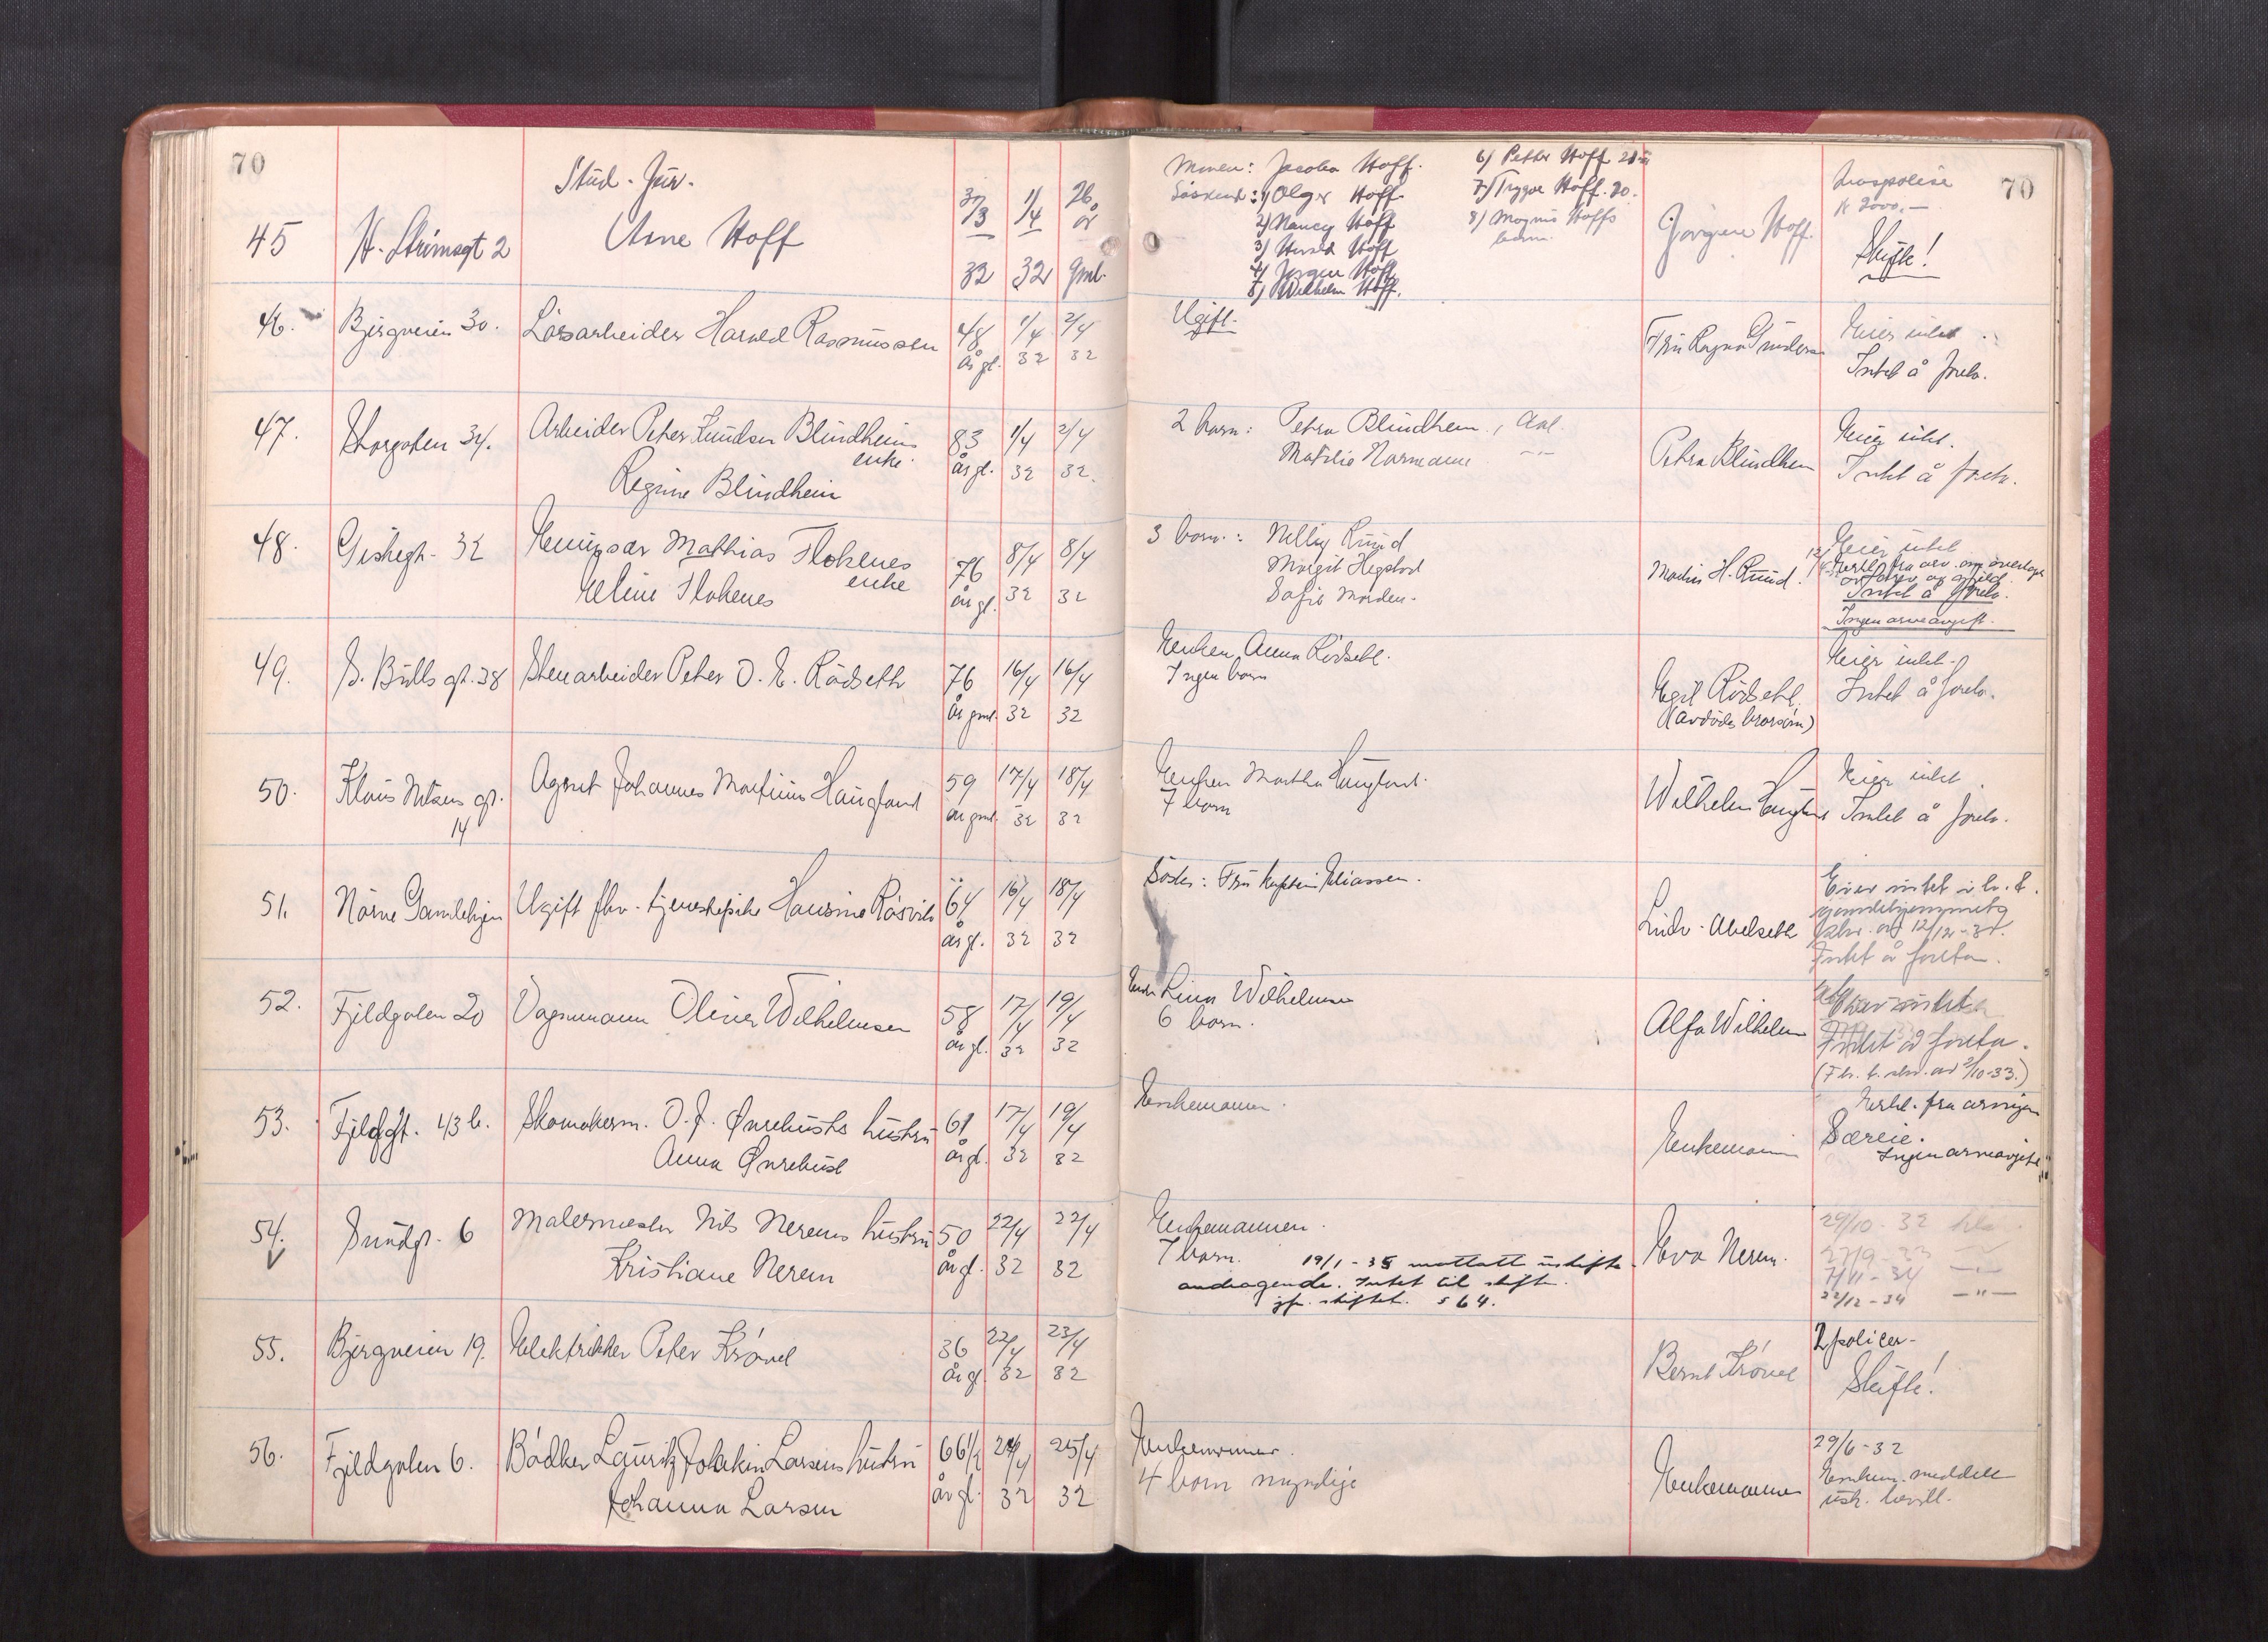 70
Stud. Jur.
45 St. Strimsgt 2 Arne Hoff 31/3 32 1/4 32 26 år gml.
Moren: Jacoba Hoff.
Søskend: 1) Olger Hoff
2) Nancy Hoff
3) Harald Hoff
4) Jørgen Hoff
5) Wilhelm Hoff.
6) Petter Hoff 21
7) Trygve Hoff. 20.
8) Magnus Hoffs
barn.
Jørgen Hoff.
Livspolise
kr 2000.-
Skifte!
70
46. Bjergveien 30. Løsarbeider Harald Rasmussen 48 år gl. 1/4 32 2/4 32
Ugift.
Fru Ragna Gundersen
Eier intet
Intet å foreta.
47. Storgaten 34. Arbeider Peter Knudsen Blindheims
enke
Regine Blindheim
83 år gl. 1/4 32 2/4 32.
2 barn: Petra Blindheim, Aal.
Matilie Normann -"-
Petra Blindheim
Eier intet.
Intet å foreta.
48. Giskegt. 32 Mathias Flokenes
enke
Eline Flokenes
76 år gl. 8/4 32 8/4 32
3 barn: Nelly Ruud
Margit Hegstad
Sofie Morden.
H. Ruud.
Eier intet
Intet å foreta.
Ingen arveavgift.
49. S. Bulls gt. 38 Stenarbeider Peter O. E. Rødseth 76 år gml. 16/4 32 16/4 32
Enken Anna Rødseth.
Ingen barn
Egil Rødseth
(avdødes brorsøn)
Eier intet.
Intet å foreta.
50. Klaus Nilsens gt.
14
Agent Johannes Martinus Haugland 59 år gml. 17/4 32 18/4 32
Enken Martha Haugland.
7 barn
Wilhelm Haugland
Eier intet
Intet å foreta.
51. Nørve Gamlehjem Ugift fhv. tjenestepike Hansine Røsvik 64 år gl. 16/4 32 18/4 32
Søster: Fru Kaptein Eliassen.
Ludv. Abelseth
Eier intet
Intet å foreta.
52. Fjeldgaten 20 Vagnmann Oliver Wilhelmsen 58 år gl. 17/4 32 19/4 32
Enke Lina Wilhelmsen
6 barn.
Alfa Wilhelmsen
Intet å foreta.
53. Fjeldgt. 43 b. Skomakerm. O. J. Ønrehusts hustru
Anna Ønrehust
61 år gl. 17/4 32 19/4 32
Enkemannen.
Enkemannen
Erkl. fra arvingen
Særeie.
Ingen arveavgift
54. Sundgt. 6 Malermester Nils Nerems hustru
Kristiane Nerem
50 år gl. 22/4 32 22/4 32
Enkemannen.
7 barn. 19/1-35 mottatt uskifte
andragende. Intet til skifte.
jfr. skiftet. s 64.
Eva Nerem.
29/10-32
27/9-33
7/11-34 -"-
22/12-34 -"-
55. Bjergveien 19. Elektriker Peter Krøvel 36 år gl. 22/4 32 23/4 32
Bernt Krøvel
2 policer-
Skifte!
56. Fjeldgaten 6. Bødker Lauritz Joakim Larsens hustru
Johanna Larsen
66 1/2 år gl. 24/4 32 25/4 32
Enkemannen.
4 barn myndige
Enkemannen
29/6-32
Enkem. meddelt
usk. bevill.